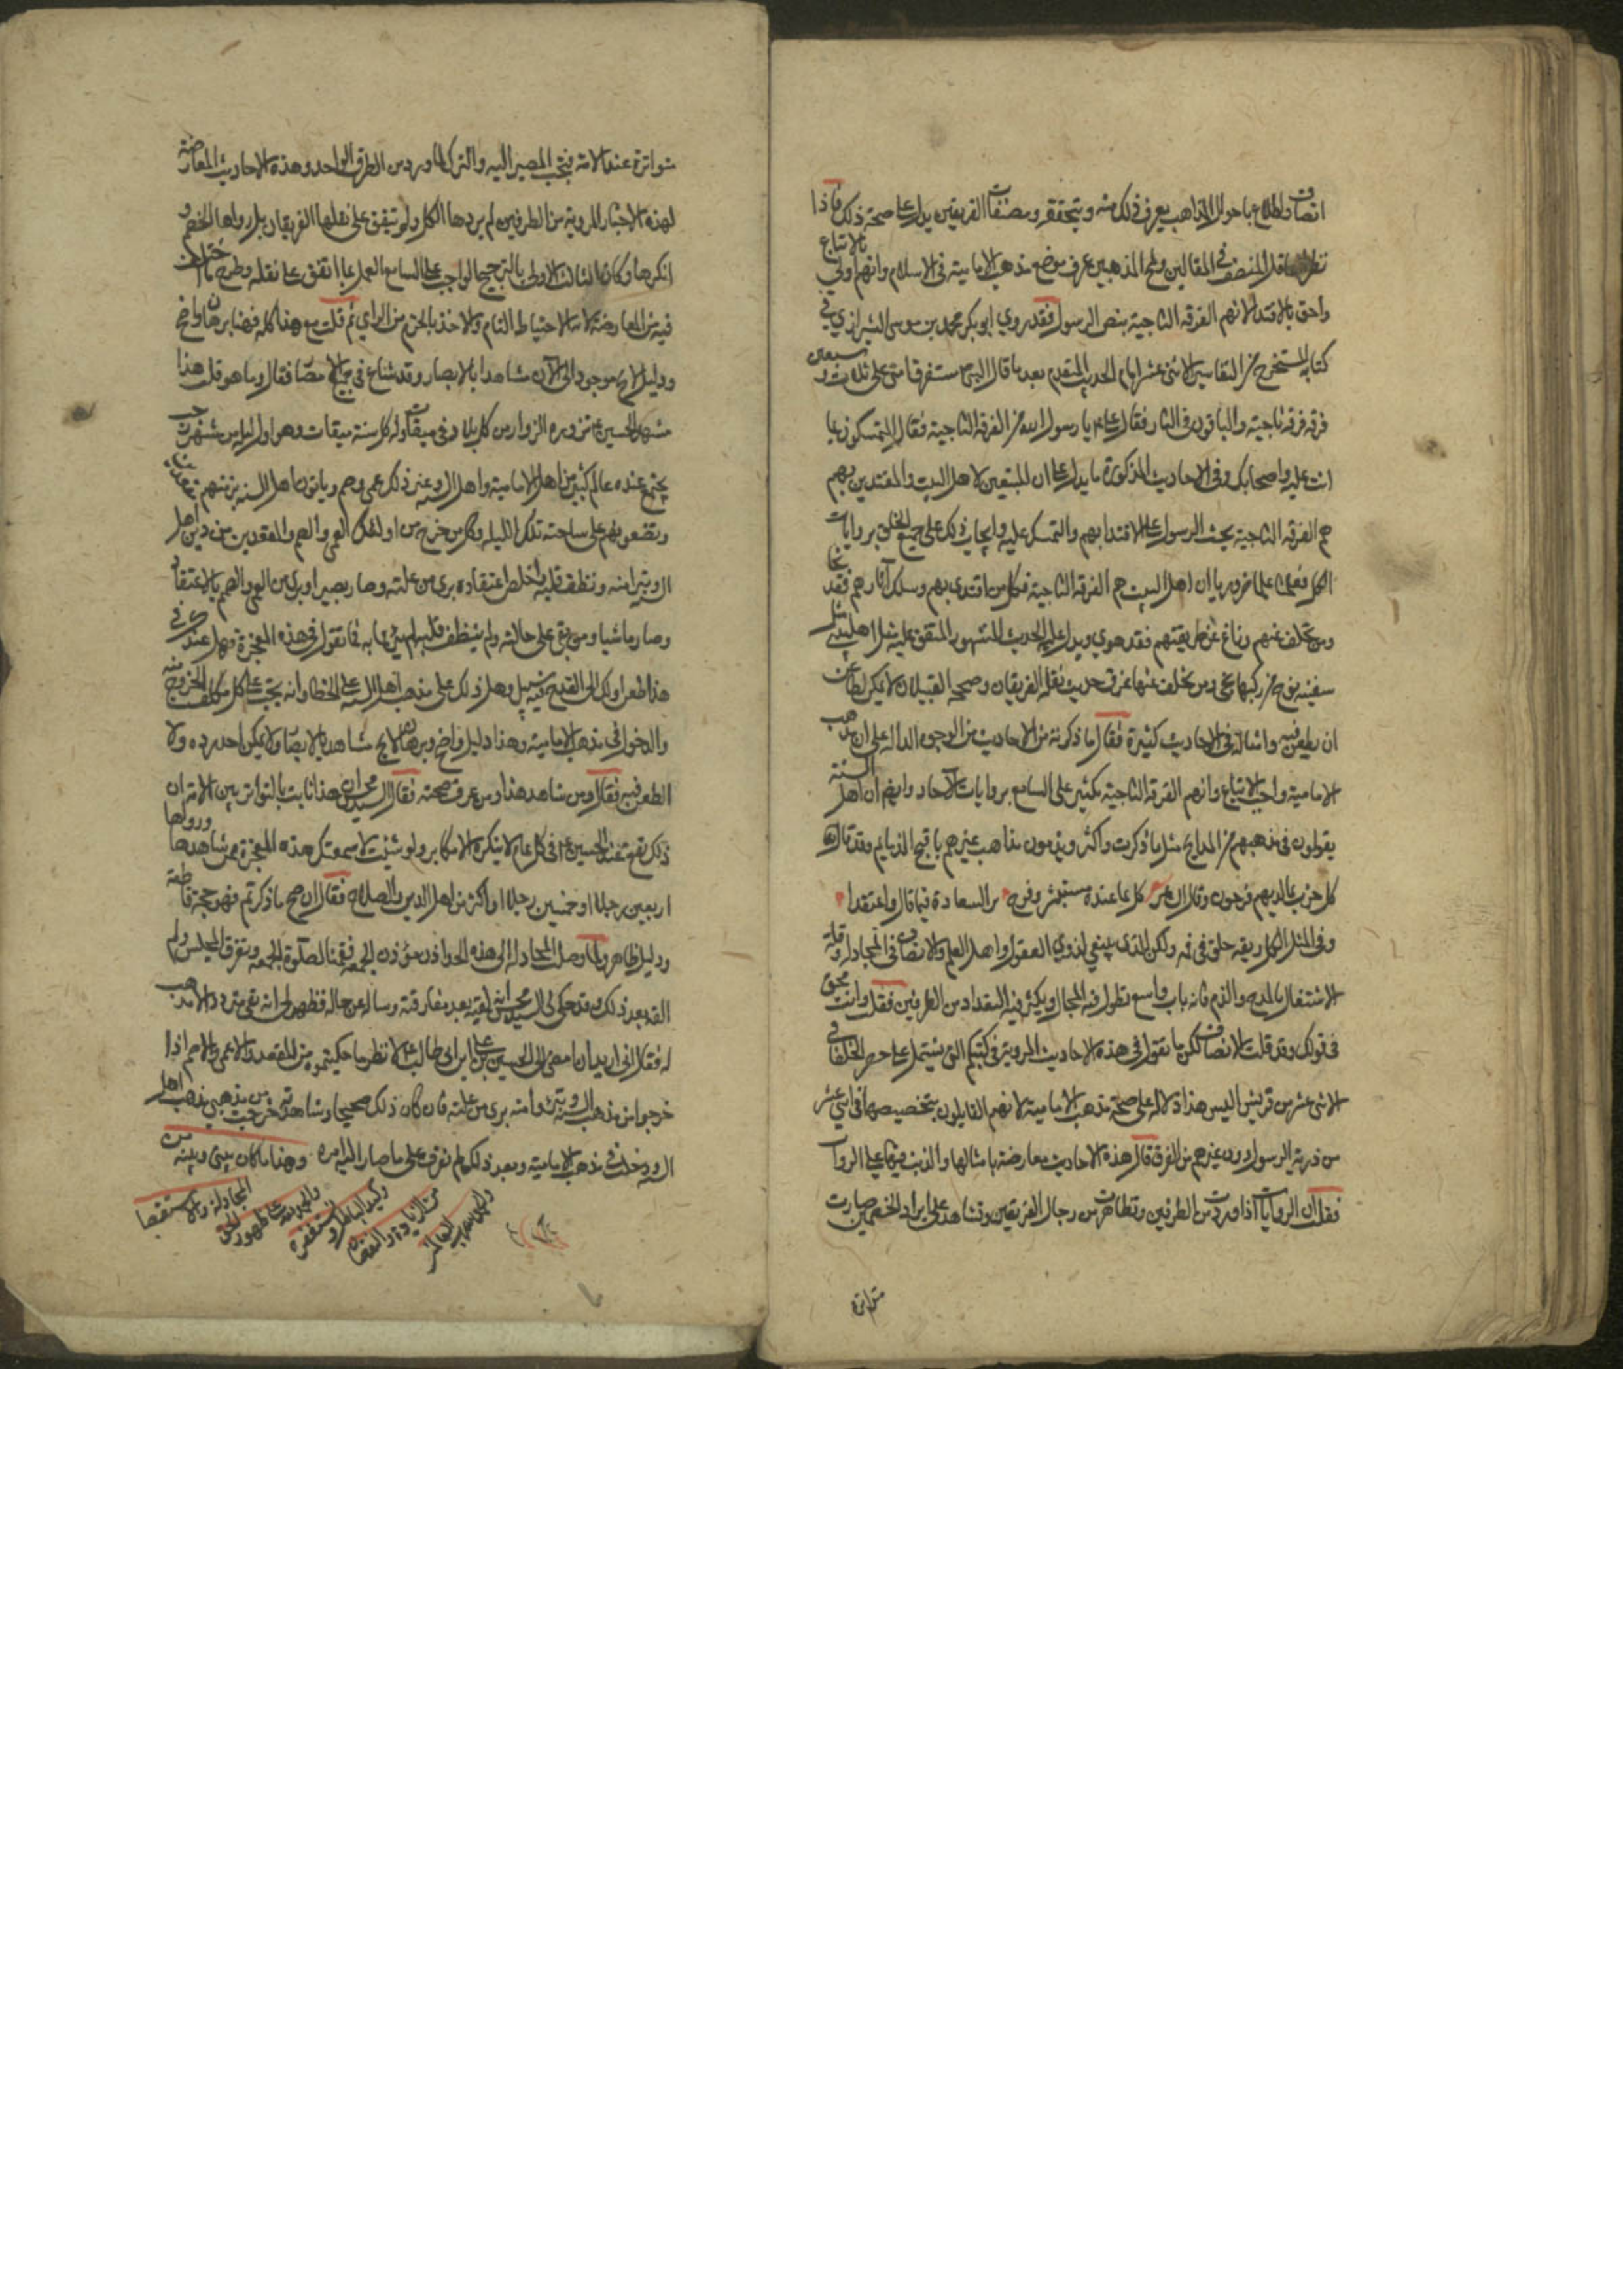 انصاف واطلاع باحوال المذاهب يعرف ذلك منه ويتحققه ومصنفات الفريقين يدل على صحة ذلك فاذا
نظر العاقل المنصف في المقالين ولمح المذهبين عرف موضع مذهب الامامية في الاسلام وانهم اولى بالاتباع
واحق بالاقتداء لانهم الفرقة الناجية بنص الرسول فقد روى ابو بكر محمد بن موسى الشيرازي في
كتابه المستخرج من التفاسير الاثنى عشر اتمام الحديث المتقدم بعد ما قال النبي ستفرق امتي على ثلاث وسبعين
فرقة فرقة ناجية والباقون في النار فقال علي يا رسول الله من الفرقة الناجية فقال المتمسكون بما
انت عليه واصحابك وفي الاحاديث المذكورة ما يدل على ان المتبعين لاهل البيت والمقتدين بهم
هم الفرقة الناجية بحث الرسول على الاقتدا بهم والتمسك عليه وايجاب ذلك على جميع الخلق بروايات
الكل فعلمنا علما ضروريا ان اهل البيت هم الفرقة الناجية فكل من اقتدى بهم وسلك آثارهم فقد نجا
ومن تخلف عنهم وزاغ عن طريقتهم فقد هوى ويدل عليه الحديث المشهور المتفق عليه مثل اهل بيتي مثل
سفينة نوح من ركبها نجى ومن تخلف عنها غرق حديث نقله الفريقان وصححه القبيلان لا يمكن لطاعن
ان يطعن فيه وامثاله في الاحاديث كثيرة فقال ما ذكرته من الاحاديث من الوجوه الداله على ان مذهب
الامامية واجب الاتباع وانهم الفرقة الناجية بكثير على السامع بروايات الآحاد وايضا ان اهل السنة
يقولون في مذهبهم من المدايح مثل ما ذكرت واكثر ويذمون مذاهب غيرهم باقبح الذمايم وقد قال الله
كل حزب بما لديهم فرحون وقال الشاعر كل بما عنده مستبشر وفرح يرى السعادة فيما قال واعتقدا
وفي المثل الكل ريقه حلو في فمه ولكن الذي ينبغي لذوي العقول واهل العلم والانصاف في المجادلة وقلة
الاشتغال بالمدح والذم فانه باب واسع تطول فيه المجال ويكثر فيه التعداد من الطرفين فقلت وانت محق
في قولك وقد قلت الانصاف لكن ما تقول في هذه الاحاديث المروية في كتبكم التي يشتمل على حصر الخلفا في
الاثنى عشر من قريش اليس هذا دلاله على صحة مذهب الامامية لانهم القايلون بتخصيصها في اثنى عشر
من ذرية الرسول دون غيرهم من الفرق قال هذه الاحاديث معارضة بامثالها والذنب فيها على الرواة
فقلت ان الروايات اذا وردت من الطرفين وتظاهرت من رجال الفريقين وتشاهد على ايراد الخصمين صارت
متواترة
متواترة عند الامة فيجب المصير اليه والترك لما ورد من الطرف الواحد وهذه الاحاديث المعارضة
لهذه الاخبار المروية من الطرفين لم يردها الكل ولم يتفق على نقلها الفريقان بل رواها الخصم و
انكرها وكان الثالث الاولى بالترجيح الواجب على السامع العمل بما اتفق على نقله وطرح ما اختلف
فيه من المعارضة لانه الاحتياط التام والاخذ بالحزم من الراي ثم قلت مع هذا كله فهنا برهان واضح
ودليل لائح موجود الى الآن مشاهدا بالابصار وقد شاع في جميع الامصار فقال وما هو قلت هذا
مشهد الحسين ع تزوره الزوار من كل بلد وفي ميقات وله كل سنة ميقات وهو اول ليلة من شهر رجب
يجتمع عنده عالم كثير من اهل الامامية واهل السنة وغير ذلك عمى وصم وياتون اهل السنة بزمنهم
وتضعونهم على ساحته تلك الليلة وكل من خرج من اولئك العمى والصم والمقعدين من دين اهل
السنة وتبرا منه ونظف قلبه واخلص اعتقاده برى من علته وصار بصيرا وبرى من العمى والصم بالاعتقاد
وصار ماشيا ومن بقى على حالته ولم ينظف قلبه لم يبرئ ما به فما تقول في هذه المعجزة فهل عندك في
هذا طعن او لك الى القدح فيه سبيل وهل ذلك على مذهب اهل السنة على الخطا وانه يجب على كل مكلف الخروج منه
والدخول في مذهب الامامية وهذا دليل واضح وبرهان لائح مشاهد بالابصار ولا يمكن احد رده ولا
الطعن فيه فقال ومن شاهد هذا ومن عرف صحته فقال السيد محسن ان هذا ثابت بالتواتر بين الامة ان
ذلك يقع عند الحسين ع في كل عام لا ينكره الا مكابر ولو شئت لاسمعتك هذه المعجزة ممن شاهدها ورواها
اربعين رجلا او خمسين رجلا او اكثر من اهل الدين والصلاح فقال ان صح ما ذكرتم فهو حجة قاطعة
ودليل ظاهر ولما وصلت المجادلة الى هذه الحد اذن مؤذن الجمعة فقمنا لصلوة الجمعة وتفرق المجلس ولم
القه بعد ذلك وقد حكى لي السيد محسن انه لقيه بعد مفارقته وساله عن حاله فظهر لي انه بقي متردد الا مذهب
له فقال اني اريد ان امضى الى الحسين بن علي ابن ابى طالب ع لانظر ما حكيتموه من المقعد والاعمى والاصم اذا
خرجوا من مذهب السنة وتبرؤا منه برى من علته فان كان ذلك صحيحا وشاهدته خرجت من مذهبي مذهب اهل
السنة ودخلت في مذهب الامامية وبعد ذلك لم نعرف على ما صار اليه امره وهذا ما كان بيني وبينه من
المجادلة والاستقصا
والحمد لله على ظهور الحق
وكيد الباطل ونستغفره
من الزيادة والنقصان
والحمد لله رب العالمين